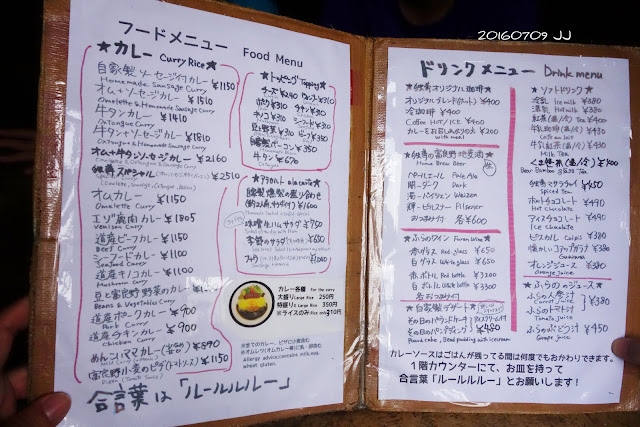 20160709 JJ
フードメニュー Food Menu
★カレー Curry Rice★
自家製ソーセージ付カレー ¥1150
Homemade Sausage Curry
オム+ソーセージカレー ¥1510
Omelette & Homemade Sausage Curry
牛タンカレー ¥1410
OxTongue Curry
牛タン+ソーセージカレー ¥1810
OxTongue & Homemade Sausage Curry
オム+牛タンソーセージカレー ¥2160
スペシャル ¥1510
オムカレー ¥1150
Omelette Curry
エゾ鹿肉カレー ¥1805
Venison Curry
道産ビーフカレー ¥1150
Beef Curry
シーフードカレー ¥1150
Seafood Curry
道産キノコカレー ¥1150
Mushroom Curry
豆と富良野野菜のカレー
Beans & Vegetables Curry
道産ポークカレー ¥900
Pork Curry
道産チキンカレー ¥900
Chicken Curry
めんこいパマカレー ¥690
富良野小麦のピザ(トマトソース) ¥1150
合言葉は「ルールルルー」
★トッピング Topping★
チーズ ¥240
チキン ¥310
ビーフ ¥380
牛タン ¥670
OxTongue
★アラカルト a la carte★
¥1600
味噌生ハムサラダ ¥950
季節のサラダ ¥650
¥1,000
カレー各種 For the curry
大盛り Large Rice 250円
特盛り X Large Rice 350円
※ライスのみ Rice only 210円
※全てのカレー、ピザに小麦含む
Allergy advice: contains milk, egg,
wheat gluten.
ドリンクメニュー Drink menu
★唯我オリジナル珈琲★
オリジナルブレンド(ホット) ¥400
冷珈琲 ¥400
Coffee HOT / ICE ¥400
カレーをお召しあがりの方 ¥200
with meal
★唯我の富良野地麦酒★
Home Brew Beer
ペールエール Pale Ale
闇-ダーク Dark
濁-バイツェン Weizen
輝-ピルスナー Pilsener
おつまみ付 各¥600
★ふらのワイン Furano Wine★
赤グラス Red glass ¥650
白グラス White glass ¥650
赤ボトル Red bottle ¥3200
白ボトル White bottle ¥3300
各おつまみ付
★自家製デザート★
¥480
Pound cake, Bread pudding with Icecream
★ソフトドリンク★
冷乳 Ice milk ¥380
温乳 Hot milk ¥380
紅茶(温/冷) Tea ¥400
牛乳珈琲(温/冷) ¥500
Cafe au lait
牛乳紅茶(温/冷) ¥500
Milk Tea
くま笹茶(温/冷) ¥100
Bear Bamboo Grass Tea
唯我マサラチャイ ¥450
Spiced Tea
ホットチョコレート ¥490
Hot Chocolate
アイスチョコレート ¥490
Ice chocolate
カルピス Calpis ¥380
懐かしいコアップガラナ ¥380
Guarana
オレンジジュース ¥380
Orange juice
★ふらののジュース★
ふらの人参汁 ¥380
Carrot juice
ふらのトマト汁 ¥380
Tomato juice
ふらのぶどう汁 ¥450
Grape juice
カレーソースはごはんが残ってる間は何度でもおかわりできます。
１階カウンターにて、お皿を持って
合言葉「ルールルルー」とお願いします！